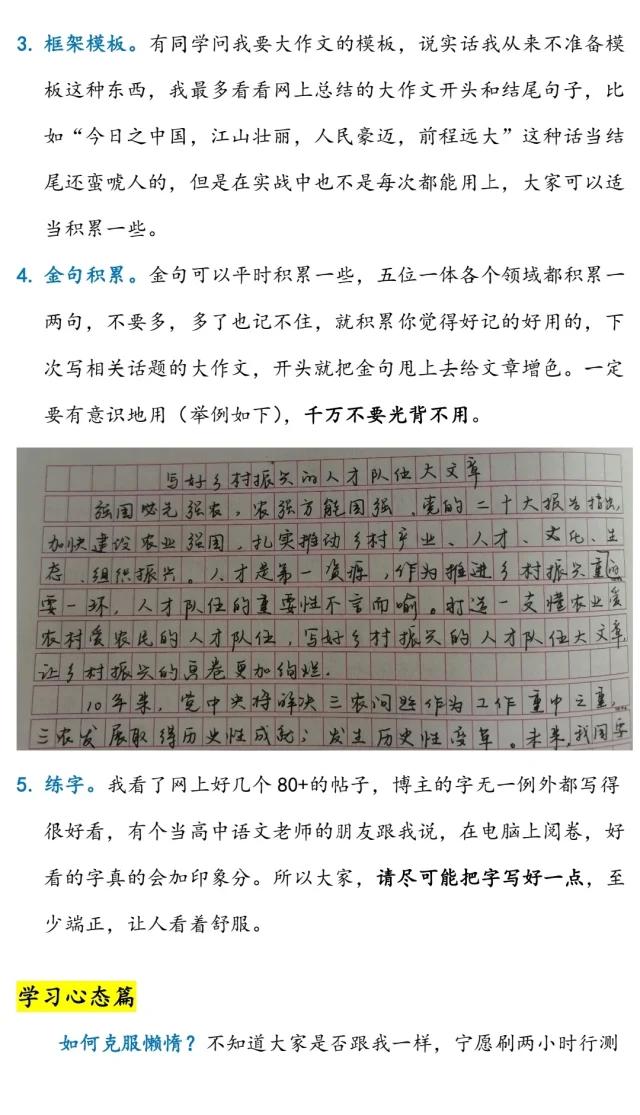 3. 框架模板。有同学问我要大作文的模板，说实话我从来不准备模
板这种东西，我最多看看网上总结的大作文开头和结尾句子，比
如“今日之中国，江山壮丽，人民豪迈，前程远大”这种话当结
尾还蛮唬人的，但是在实战中也不是每次都能用上，大家可以适
当积累一些。
4. 金句积累。金句可以平时积累一些，五位一体各个领域都积累一
两句，不要多，多了也记不住，就积累你觉得好记的好用的，下
次写相关话题的大作文，开头就把金句甩上去给文章增色。一定
要有意识地用（举例如下），千万不要光背不用。
写好乡村振兴的人才队伍大文章
强国必先强农，农强方能国强。党的二十大报告指出，
加快建设农业强国，扎实推动乡村产业、人才、文化、生
态、组织振兴。人才是第一资源，作为推进乡村振兴重要的
要一环，人才队伍的重要性不言而喻。打造一支懂农业爱
农村爱农民的人才队伍，写好乡村振兴的人才队伍大文章，
让乡村振兴的画卷更加绚烂。
10年来，党中央将解决三农问题作为工作重中之重，
三农发展取得历史性成就；发生历史性变革。未来，我国要
5. 练字。我看了网上好几个 80+的帖子，博主的字无一例外都写得
很好看，有个当高中语文老师的朋友跟我说，在电脑上阅卷，好
看的字真的会加印象分。所以大家，请尽可能把字写好一点，至
少端正，让人看着舒服。
学习心态篇
如何克服懒惰？不知道大家是否跟我一样，宁愿刷两小时行测